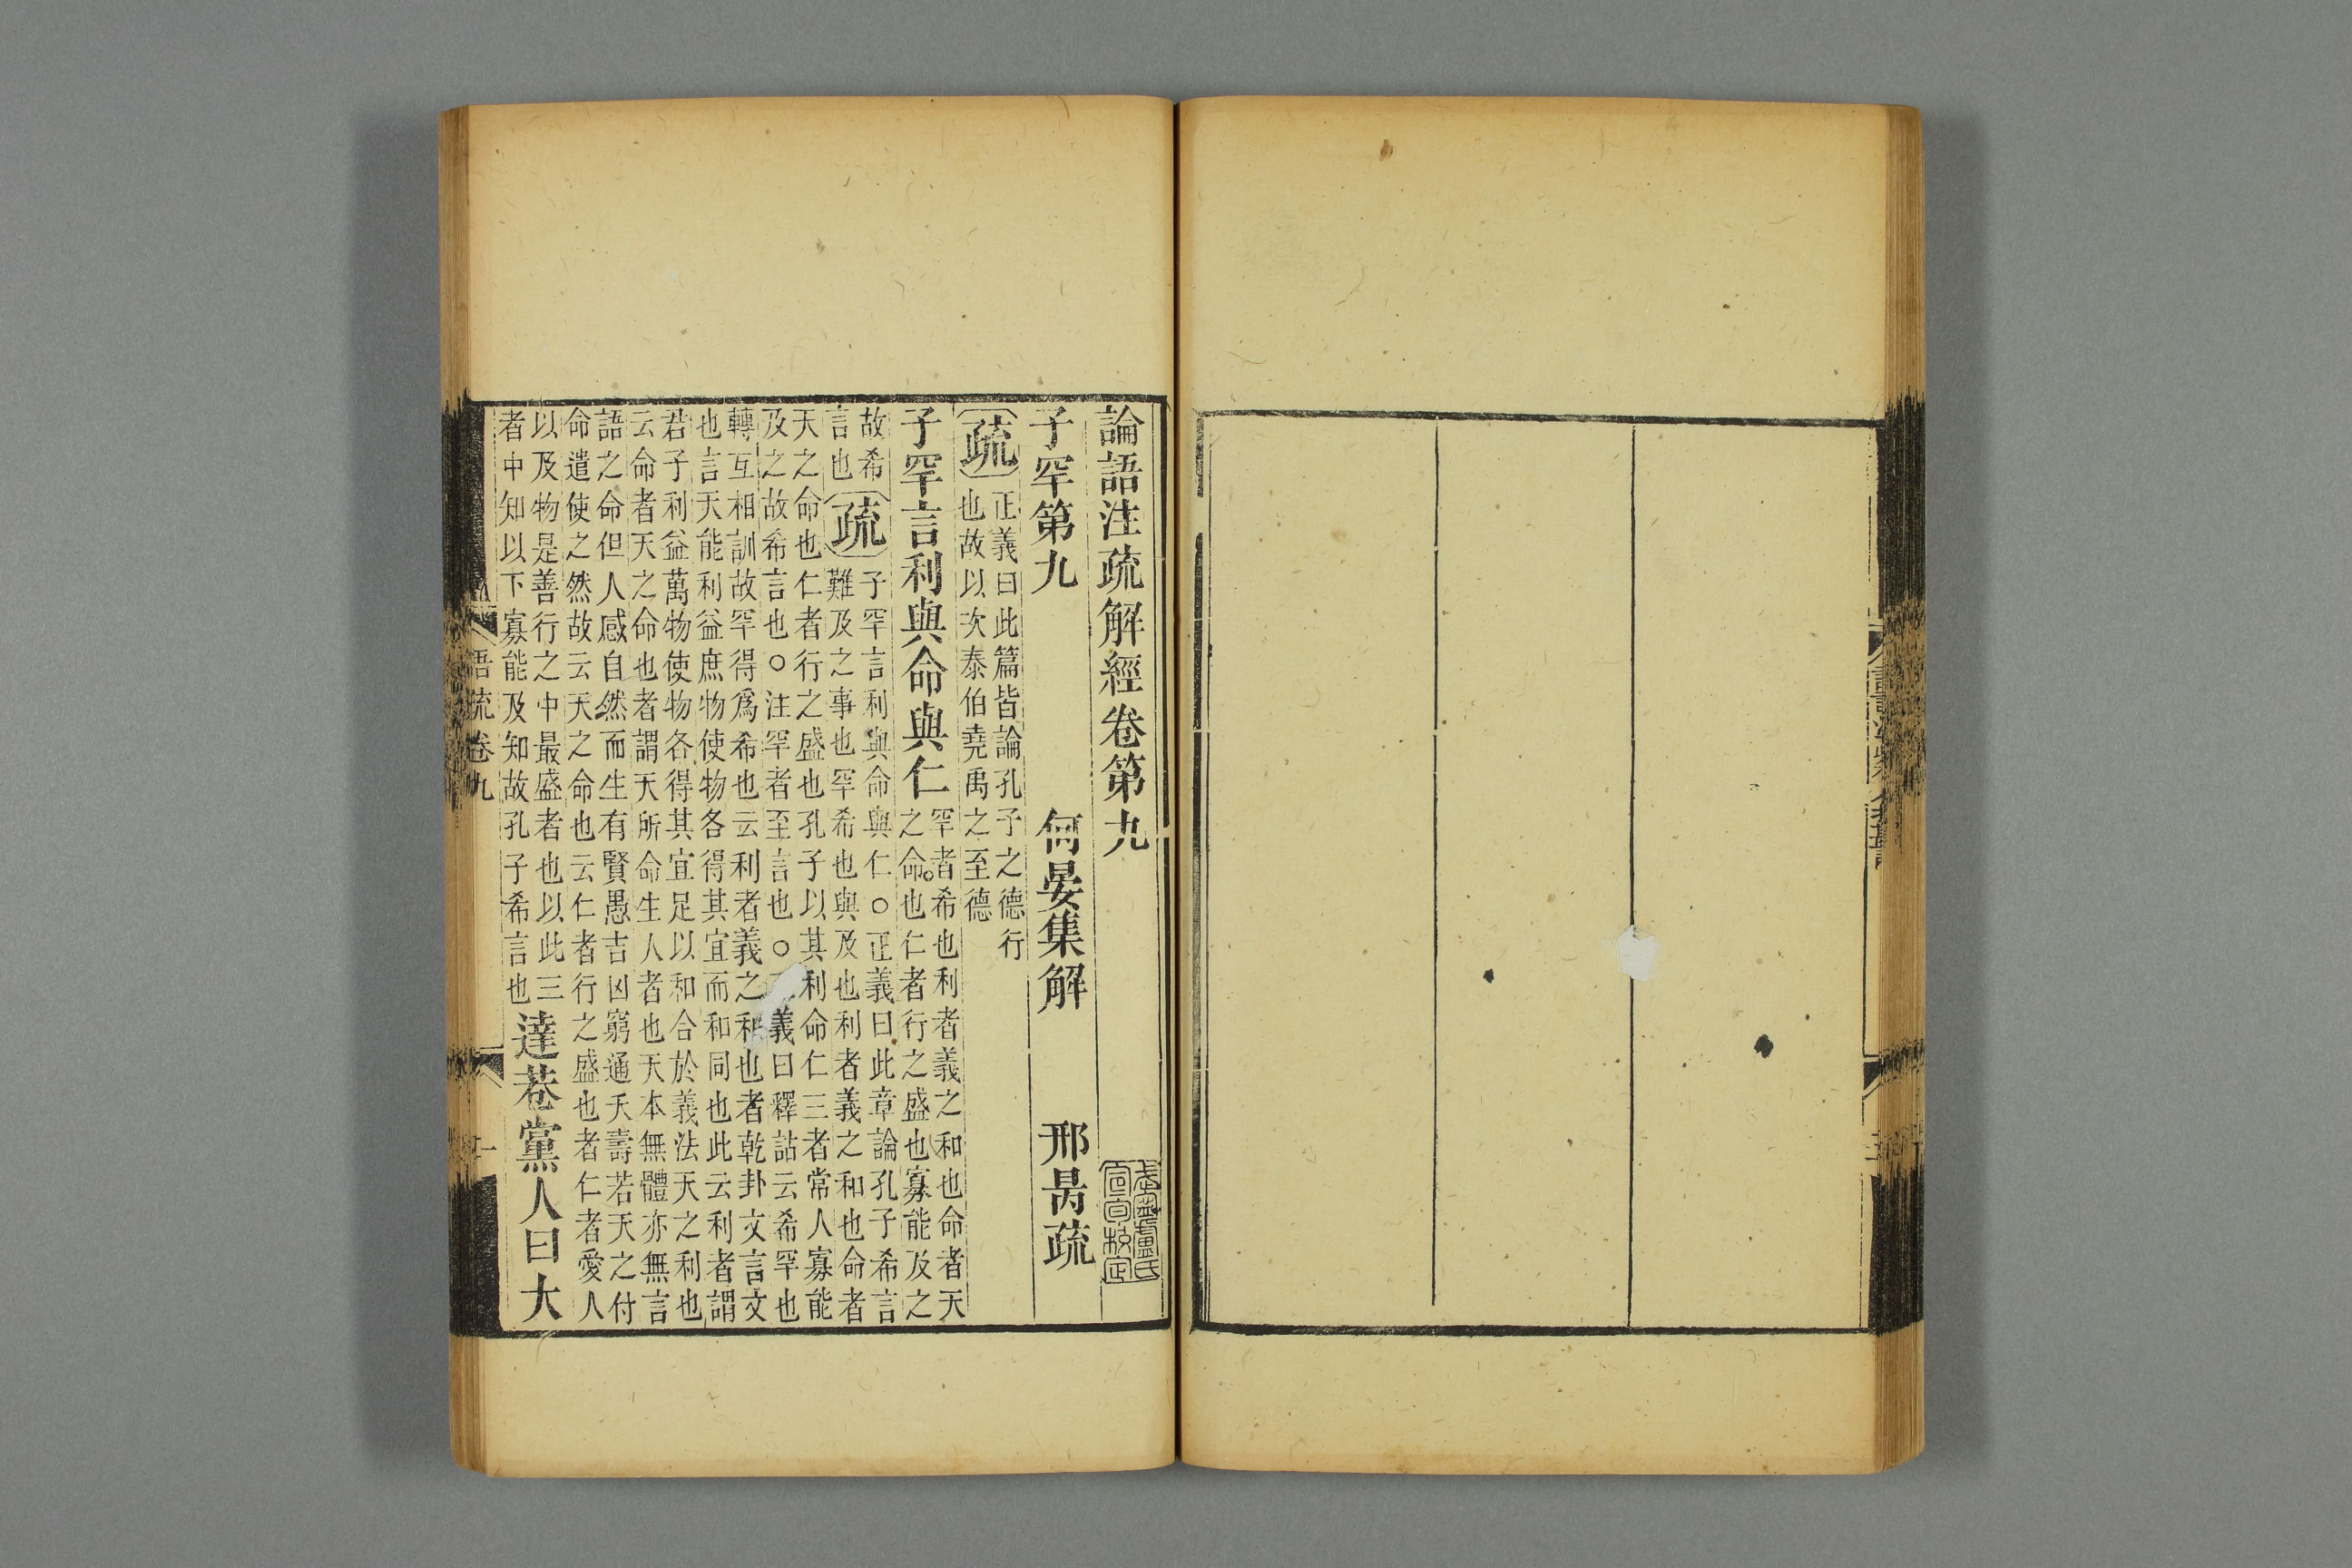 論語注疏解經卷第九
子罕第九 何晏集解 邢昺疏
疏 正義曰此篇皆論孔子之德行
也故以次泰伯堯禹之至德
子罕言利與命與仁 罕者希也利者義之和也命者天
之命也仁者行之盛也寡能及之
故希
言也 疏 子罕言利與命與仁○正義曰此章論孔子希言
難及之事也罕希也與及也利者義之和也命者
天之命也仁者行之盛也孔子以其利命仁三者常人寡能
及之故希言也○注罕者至言也○義曰釋詁云希罕也
轉互相訓故罕得爲希也云利者義之和也者乾卦文言文
也言天能利益庶物使物各得其宜而和同也此云利者謂
君子利益萬物使物各得其宜足以和合於義法天之利也
云命者天之命也者謂天所命生人者也天本無體亦無言
語之命但人感自然而生有賢愚吉凶窮通夭壽若天之付
命遣使之然故云天之命也云仁者行之盛也者仁者愛人
以及物是善行之中最盛者也以此三
者中知以下寡能及知故孔子希言也 達巷黨人曰大
語疏卷九 一